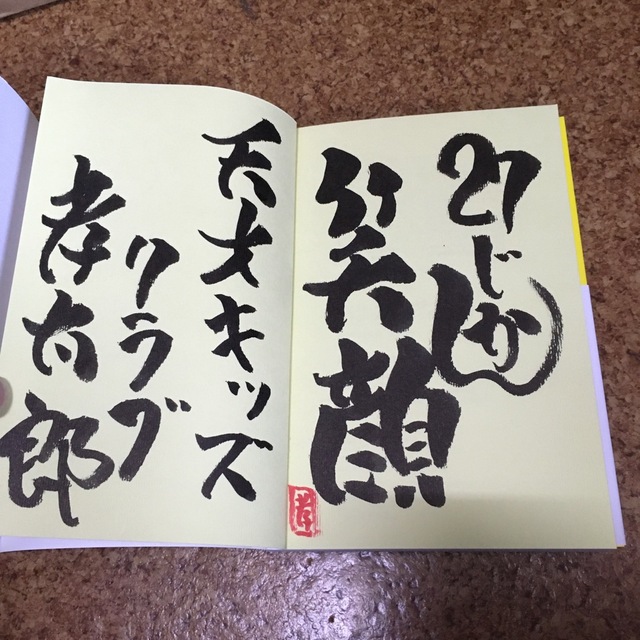 27じかん
笑顔
天才キッズ
クラブ
孝太郎
孝